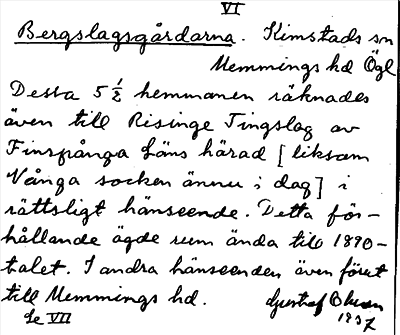 VI
Bergslagsgårdarna. Kimstads sn
Memmings hd Ögl
Dessa 5 ½ hemmanen räknades
även till Risinge Tingslag av
Finspånga Läns härad [liksom
Vånga socken ännu i dag] i
rättsligt hänseende. Detta för-
hållande ägde rum ända till 1890-
talet. I andra hänseenden även förut
till Memmings hd. Gustaf
Se VII 1937